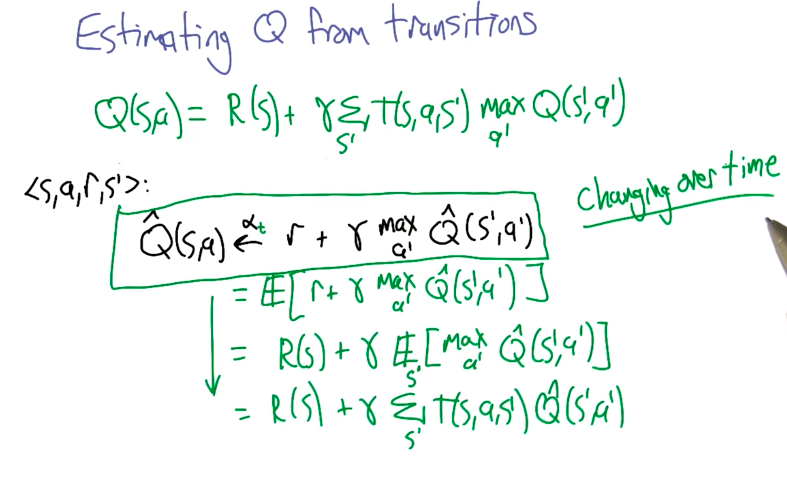 Estimating Q from transitions
Q(s,a) = R(s) + γ Σ_s' T(s,a,s') max_a' Q(s',a')
<s,a,r,s'>:
Q̂(s,a) ←^αt r + γ max_a' Q̂(s',a')
changing over time
= 𝔼[r + γ max_a' Q̂(s',a')]
= R(s) + γ 𝔼_s'[max_a' Q̂(s',a')]
= R(s) + γ Σ_s' T(s,a,s') Q̂(s',a')